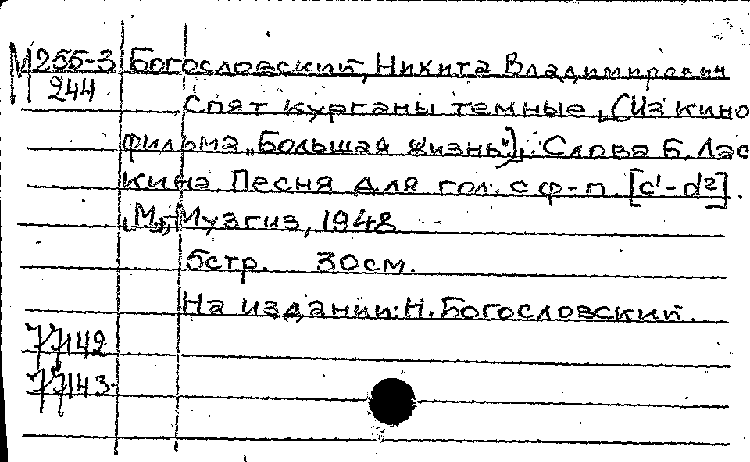 М 255-3 Богословский, Никита Владимирович
244 Спят курганы темные, (Из кино
фильма „Большая жизнь"). Слова Б. Лас
кина. Песня для гол. с ф-п. [c¹-d²].
М., Музгиз, 1948
5стр. 30см.
На издании: Н. Богословский.
77142
77143